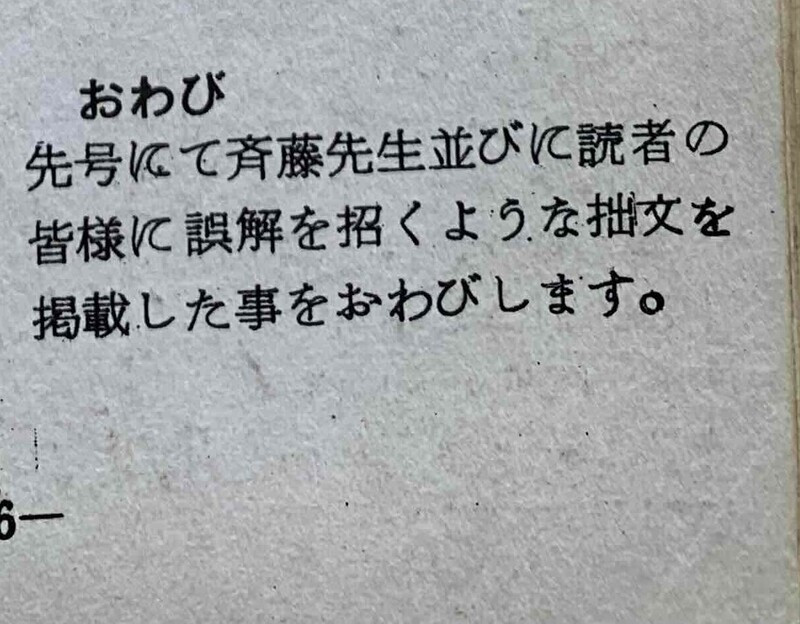 おわび
先号にて斉藤先生並びに読者の
皆様に誤解を招くような拙文を
掲載した事をおわびします。
6—